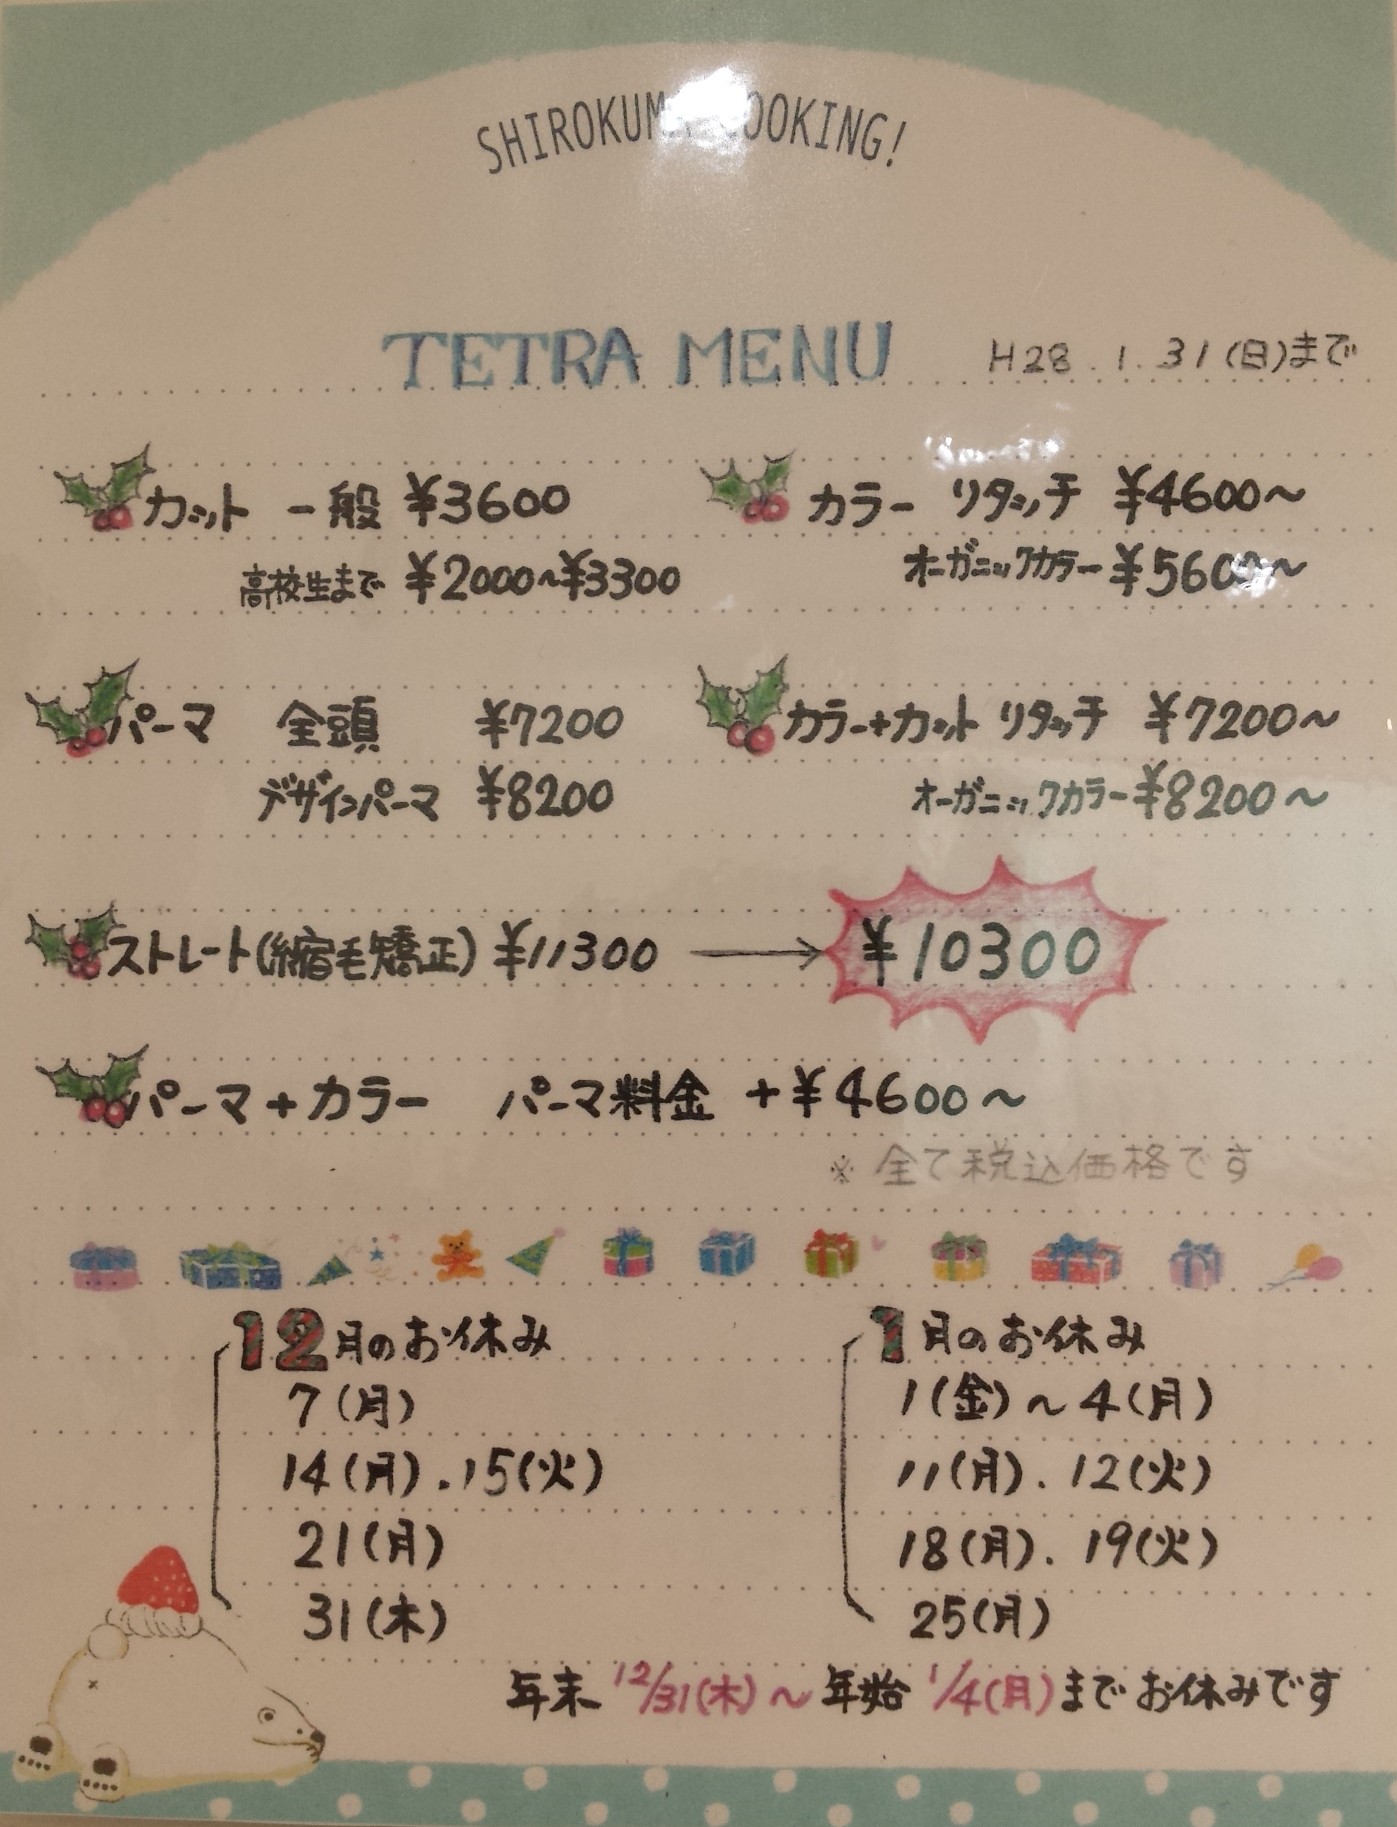 SHIROKUMA COOKING!
TETRA MENU H28.1.31(日)まで
カット 一般 ¥3600
高校生まで ¥2000~¥3300
カラー リタッチ ¥4600~
オーガニックカラー ¥5600~
パーマ 全頭 ¥7200
デザインパーマ ¥8200
カラー+カット リタッチ ¥7200~
オーガニックカラー ¥8200~
ストレート(縮毛矯正) ¥11300 → ¥10300
パーマ+カラー パーマ料金 +¥4600~
※全て税込価格です
12月のお休み
7(月)
14(月).15(火)
21(月)
31(木)
1月のお休み
1(金)~4(月)
11(月).12(火)
18(月).19(火)
25(月)
年末12/31(木)~年始1/4(月)までお休みです